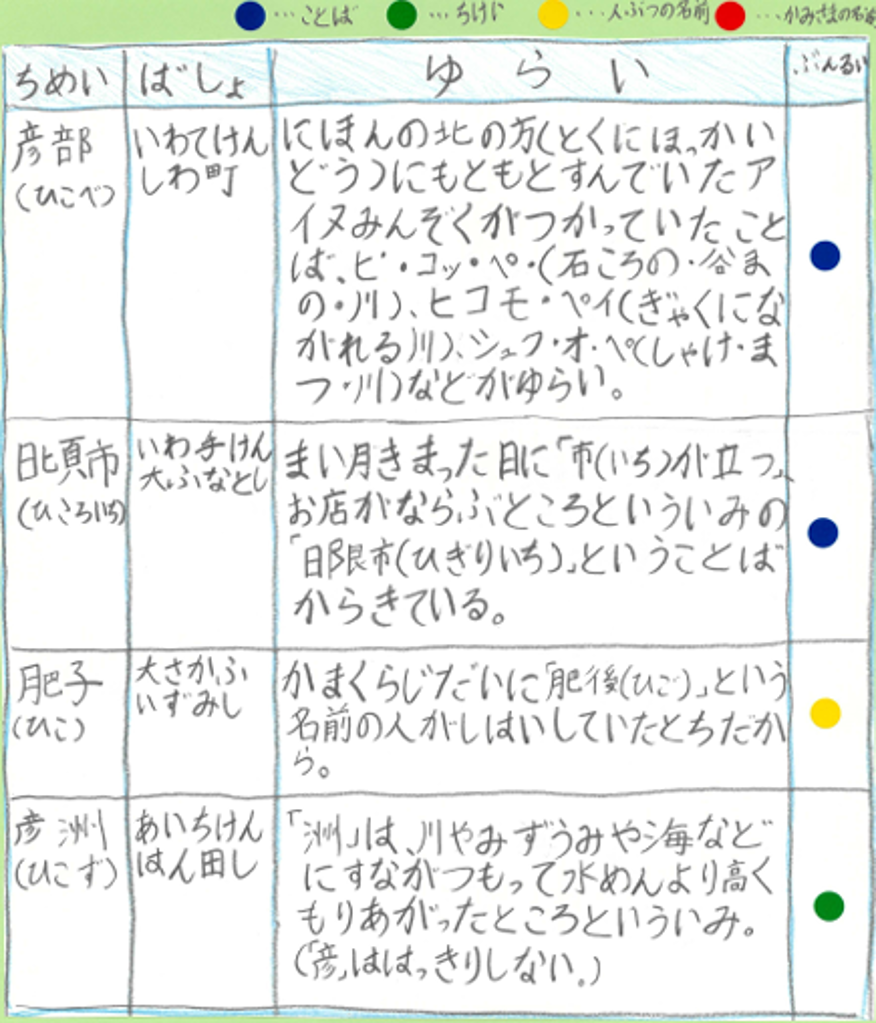 …ことば …ちけい …人ぶつの名前 …かみさまの名前
ちめい ばしょ ゆらい ぶんるい
彦部
(ひこべ)
いわてけん
しわ町
にほんの北の方(とくにほっかい
どう)にもともとすんでいたア
イヌみんぞくがつかっていたこと
ば、ピ・コッ・ペ・(石ころの・谷ま
の・川)、ヒコモ・ペイ(ぎゃくにな
がれる川)、シュフ・オ・ペ(しゃけ・ま
つ・川)などがゆらい。
日頃市
(ひころいち)
いわ手けん
大ふなとし
まい月きまった日に「市(いち)が立つ」、
お店がならぶところといういみの
「日限市(ひぎりいち)」ということば
からきている。
肥子
(ひこ)
大さかふ
いずみし
かまくらじだいに「肥後(ひご)」という
名前の人がしはいしていたとちだか
ら。
彦洲
(ひこず)
あいちけん
はん田し
「洲」は、川やみずうみや海など
にすながつもって水めんより高く
もりあがったところといういみ。
(「彦」ははっきりしない。)